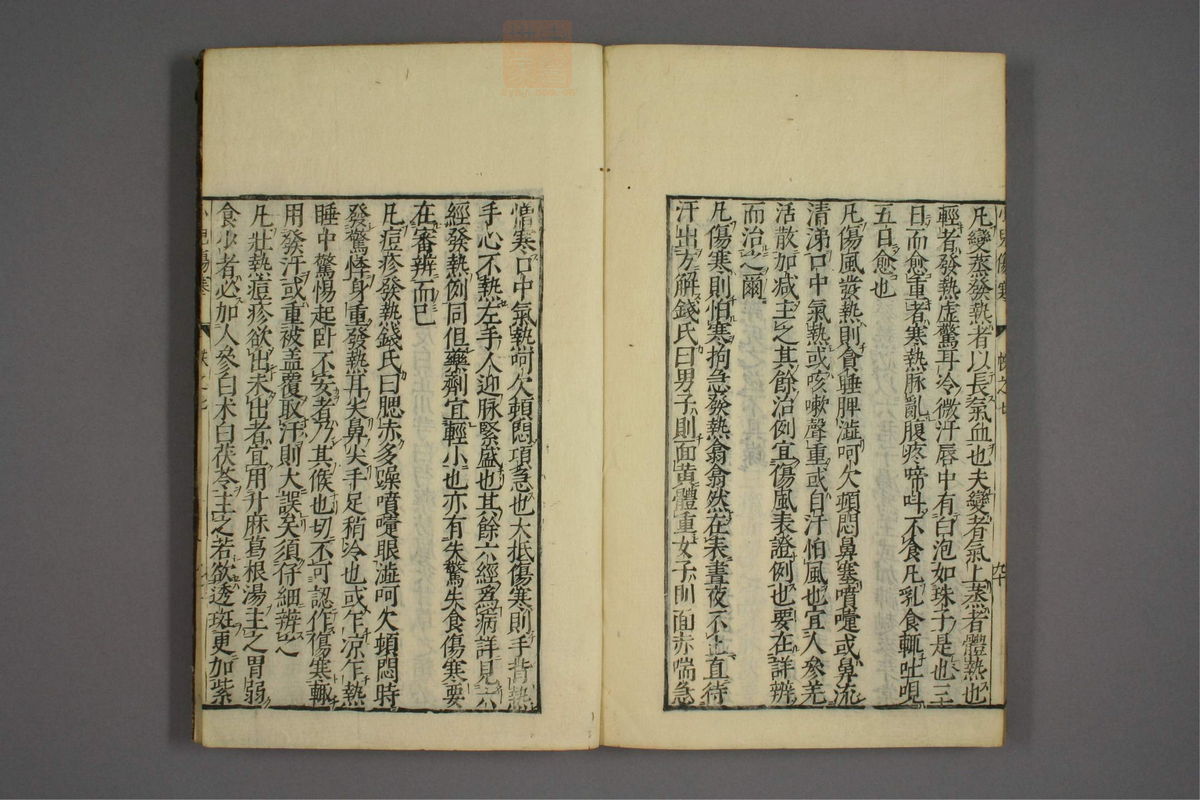 凡變蒸發熱者以長氣血也夫變者氣上蒸者體熱也
輕者發熱虛驚耳冷微汗唇中有白泡如珠子是也三
日而愈重者寒熱脉亂腹疼啼叫不食凡乳食輒吐哯
五日愈也
凡傷風發熱則貪睡脾澁呵欠頓悶鼻塞噴嚏或鼻流
清涕口中氣熱或咳嗽聲重或自汗怕風也宜人參羌
活散加减主之其餘治例宜傷風表證例也要在詳辨
而治之爾
凡傷寒則怕寒拘急發熱翕翕然在表晝夜不止直待
汗出方解錢氏曰男子則面黃體重女子則面赤喘急
憎寒口中氣熱呵欠頓悶項急也大抵傷寒則手背熱
手心不熱左手人迎脉緊盛也其餘六經爲病詳見六
經發熱例同但藥劑宜輕小也亦有失驚失食傷寒要
在審辨而已
凡痘疹發熱錢氏曰腮赤多躁噴嚏眼澁呵欠頓悶時
發驚悸身重發熱耳尖鼻尖手足稍冷也或乍凉乍熱
睡中驚惕起卧不安者乃其候也切不可認作傷寒輒
用發汗或重被盖覆取汗則大誤矣須仔細辨之
凡壯熱痘疹欲出未出者宜用升麻葛根湯主之胃弱
食少者必加人參白术白茯苓主之若欲透斑更加紫
小兒傷寒